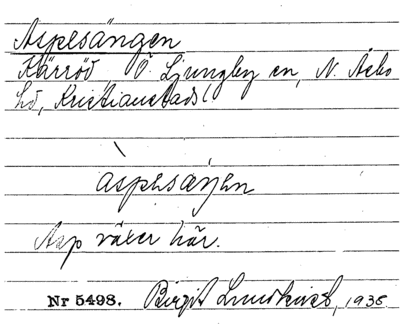 Aspesängen
Kärröd, Ö. Ljungby sn, N. Åsbo
hd, Kristianstads l
àspesaŋen
Asp växer här.
Nr 5498. Birgit Lundkvist, 1935